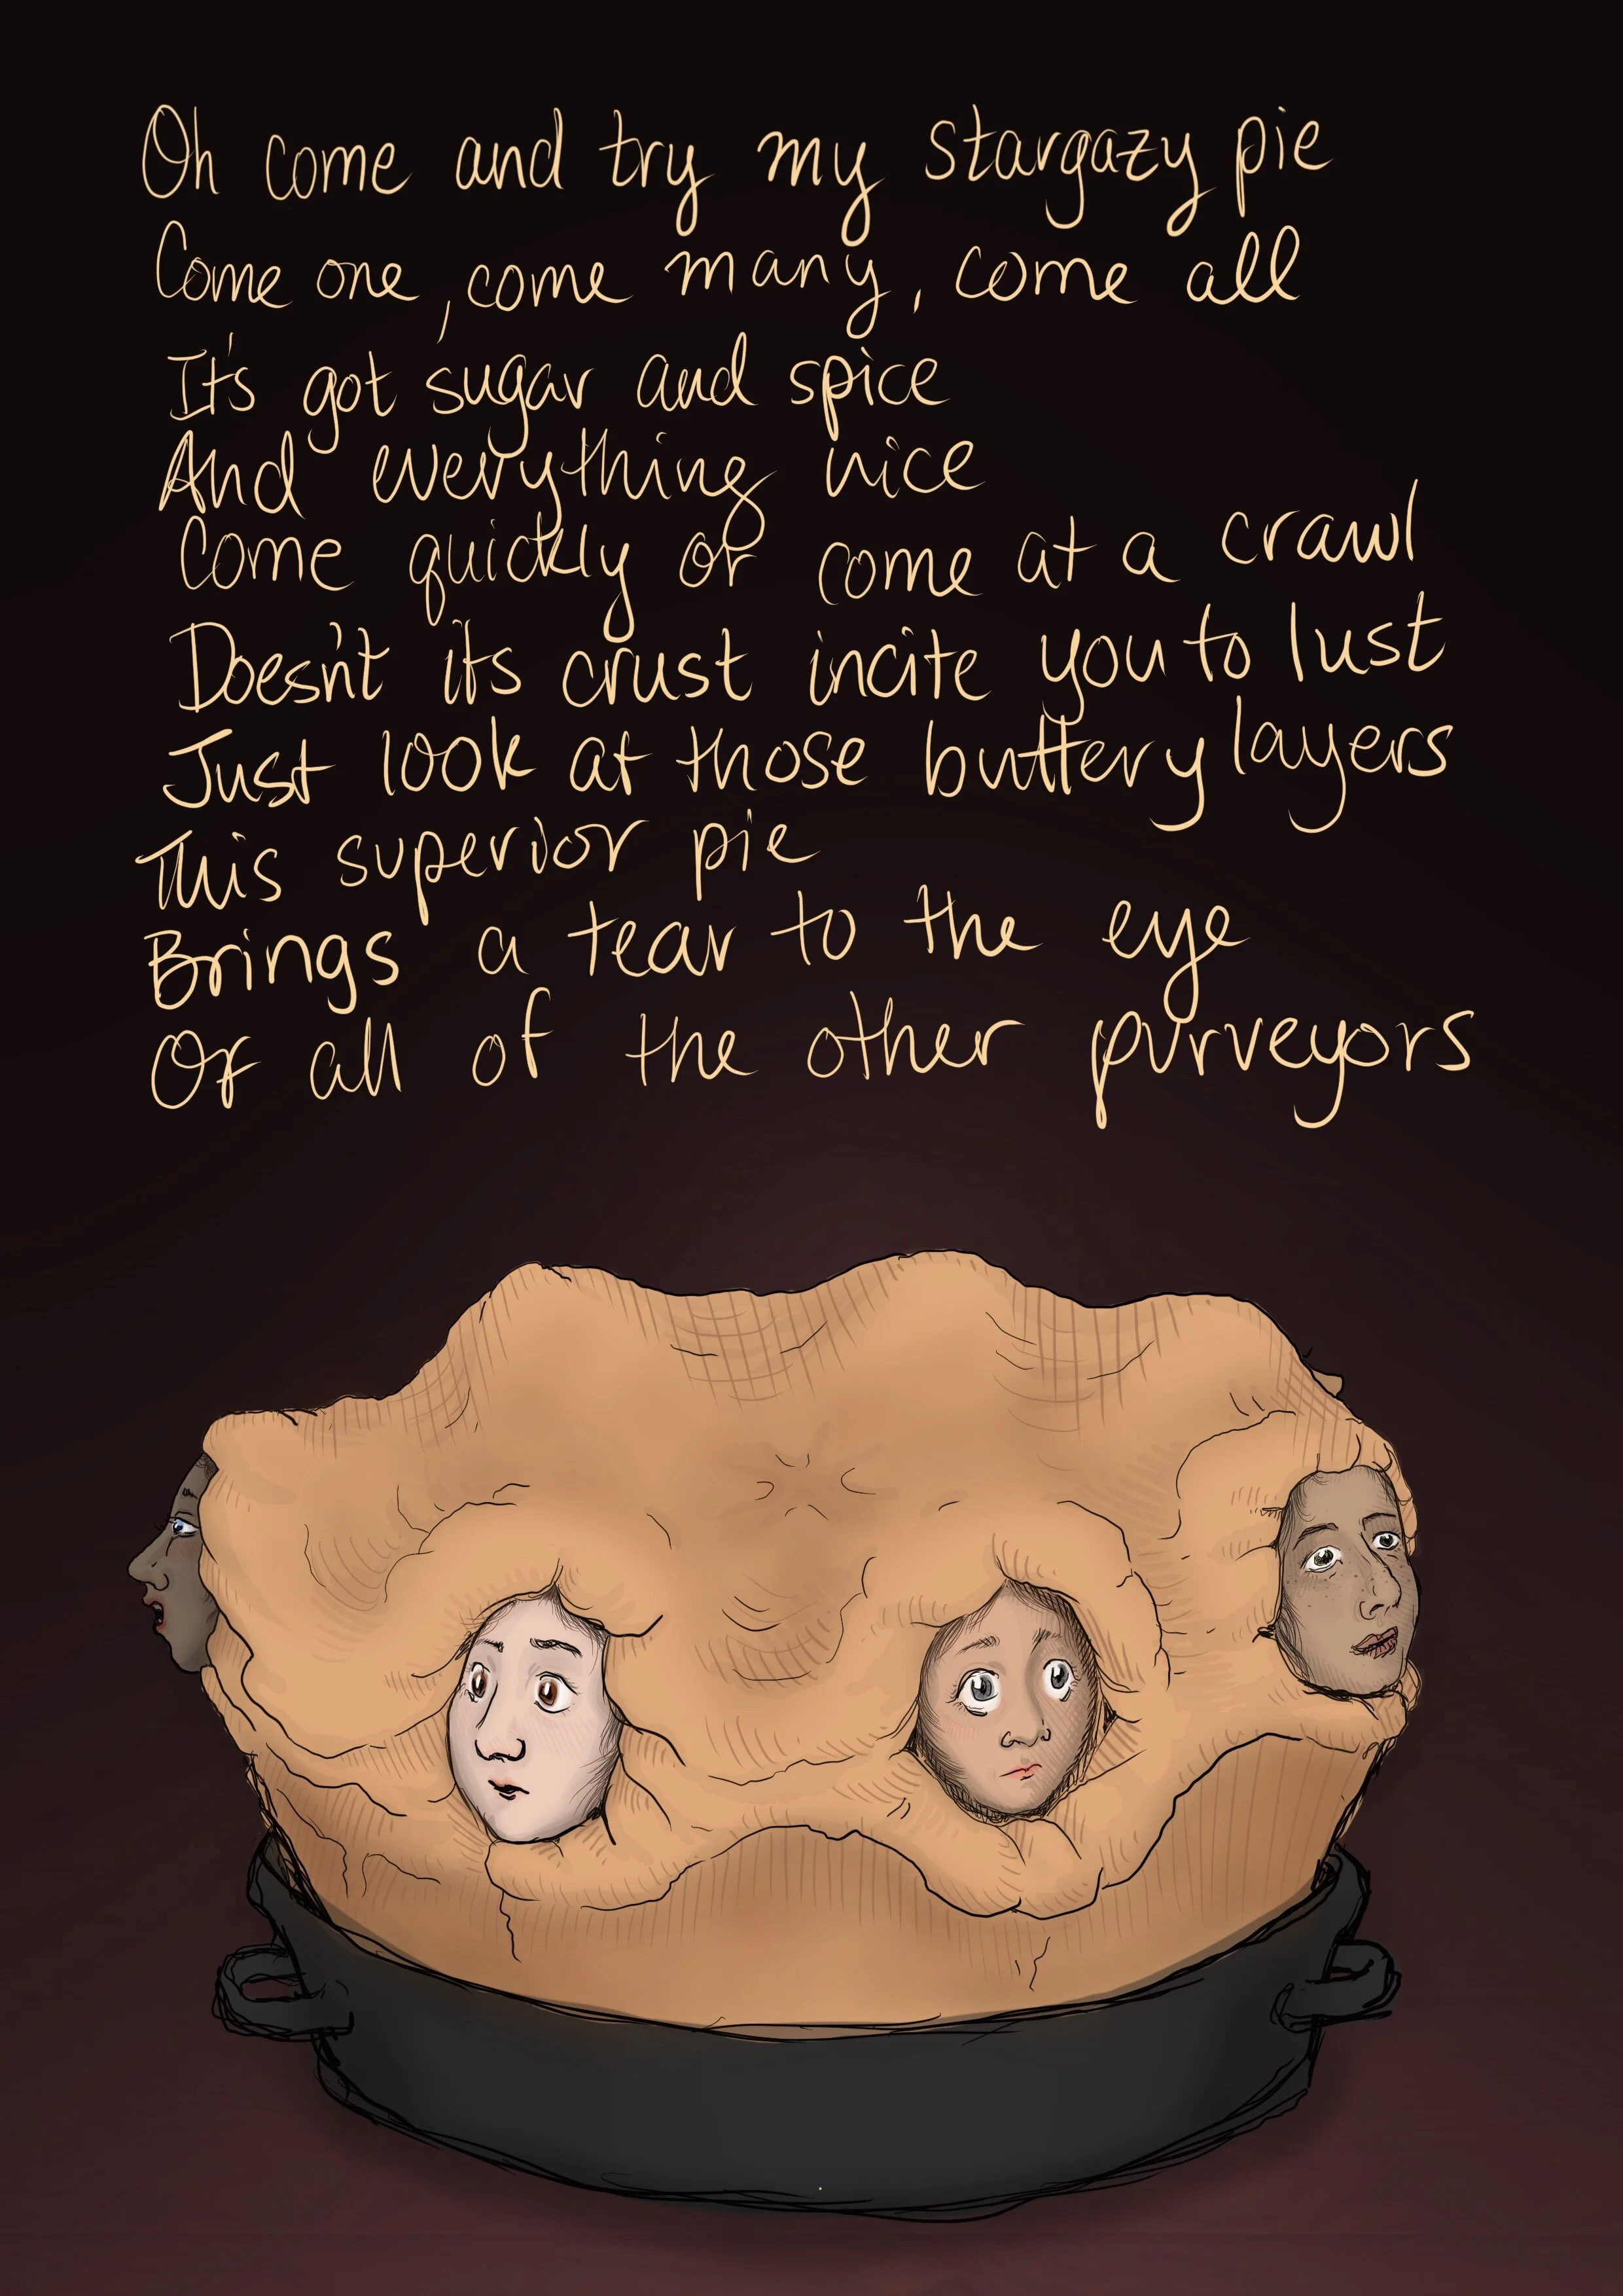 Oh come and try my stargazy pie
Come one, come many, come all
It's got sugar and spice
And everything nice
Come quickly or come at a crawl
Doesn't its crust incite you to lust
Just look at those buttery layers
This superior pie
Brings a tear to the eye
Of all of the other purveyors